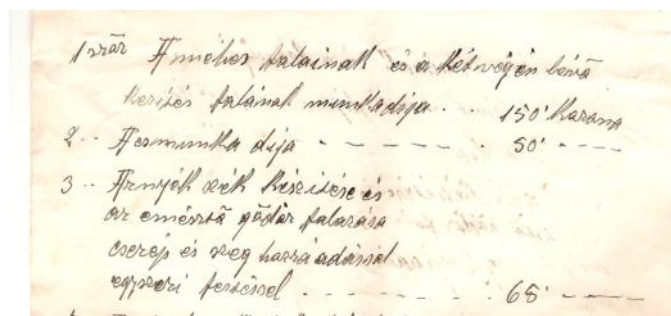 1 ször A méhes falainak és a két végén lévő
kerités falának munkadija . . 150' Korona
2 . . Ácsmunka dija - - - - - . 50' - - - -
3 . . Árnyék szék készitése és
az emésztő gödör falazása
cserép és szeg hozzáadással
egyszeri festéssel - - - - - - . 65' - - - -